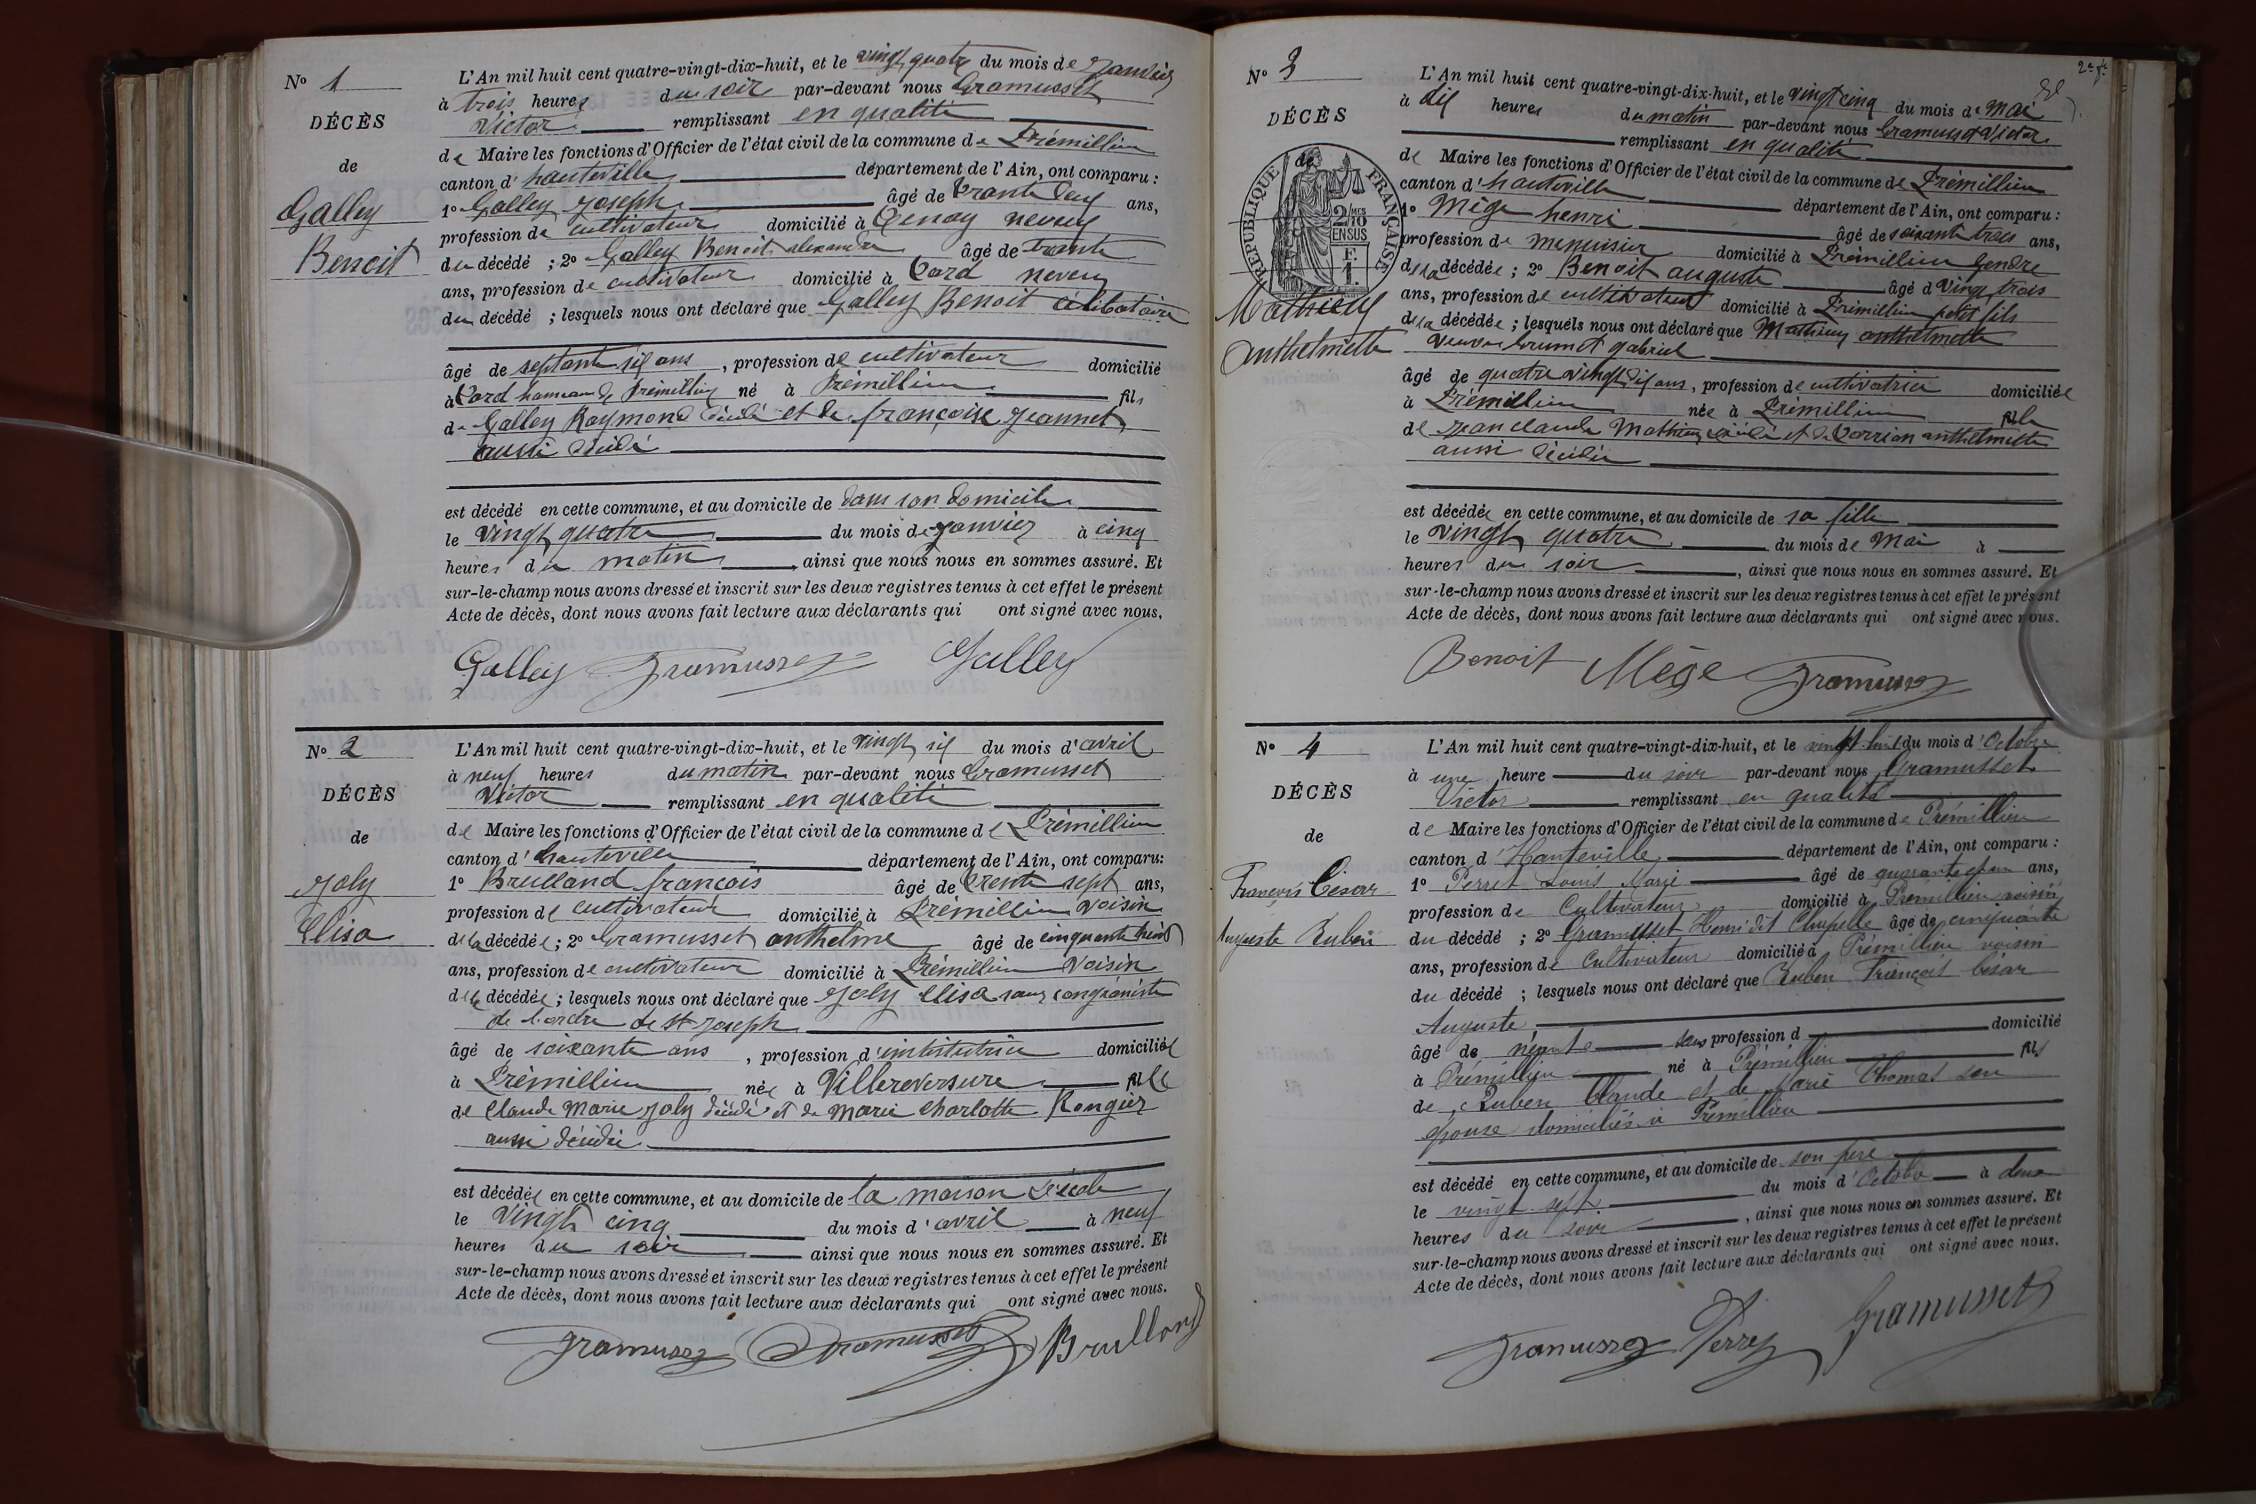 N° 1
DÉCÈS
de
Galley
Benoit
L'An mil huit cent quatre-vingt-dix-huit, et le vingt quatre du mois de Janvier
à trois heures du soir par-devant nous Gramusset
Victor remplissant en qualité
de Maire les fonctions d'Officier de l'état civil de la commune de Prémillieu
canton d'hauteville département de l'Ain, ont comparu :
1° Galley Joseph âgé de trante ans,
profession de cultivateur domicilié à neveu
du décédé ; 2° Galley Benoit alexandre âgé de trante
ans, profession de cultivateur domicilié à neveu
du décédé ; lesquels nous ont déclaré que Galley Benoit célibataire
âgé de septante six ans , profession de cultivateur domicilié
à hameau de Prémillieu né à Prémillieu fils
de Galley Raymond décédé et de françoise Jeannet
aussi décédé
est décédé en cette commune, et au domicile de dans son domicile
le vingt quatre du mois de janvier à cinq
heures du matin , ainsi que nous nous en sommes assuré. Et
sur-le-champ nous avons dressé et inscrit sur les deux registres tenus à cet effet le présent
Acte de décès, dont nous avons fait lecture aux déclarants qui ont signé avec nous.
Galley Gramusset Galley
N° 2
DÉCÈS
de
Joly
Elisa
L'An mil huit cent quatre-vingt-dix-huit, et le vingt six du mois d'avril
à neuf heures du matin par-devant nous Gramusset
Victor remplissant en qualité
de Maire les fonctions d'Officier de l'état civil de la commune de Prémillieu
canton d'hauteville département de l'Ain, ont comparu:
1° Brulland françois âgé de trente sept ans,
profession de cultivateur domicilié à Prémillieu voisin
de la décédée; 2° Gramusset anthelme âgé de cinquante huit
ans, profession de cultivateur domicilié à Prémillieu voisin
de la décédée ; lesquels nous ont déclaré que Joly Elisa
de l'ordre de st Joseph
âgé de soixante ans , profession d'institutrice domiciliée
à Prémillieu née à Villereversure fille
de Claude Marie Joly décédé et de Marie Charlotte Rongier
aussi décédée
est décédée en cette commune, et au domicile de la maison d'école
le vingt cinq du mois d'avril à neuf
heures du soir ainsi que nous nous en sommes assuré. Et
sur-le-champ nous avons dressé et inscrit sur les deux registres tenus à cet effet le présent
Acte de décès, dont nous avons fait lecture aux déclarants qui ont signé avec nous.
Gramusset Gramusset Brulland
N° 3
DÉCÈS
de
RÉPUBLIQUE FRANÇAISE
2/10
EN SUS
F.
1.
Mathieu
anthelmette
L'An mil huit cent quatre-vingt-dix-huit, et le vingt cinq du mois de Mai
à dix heures du matin par-devant nous Gramusset Victor
remplissant en qualité
de Maire les fonctions d'Officier de l'état civil de la commune de Prémillieu
canton d'hauteville département de l'Ain, ont comparu :
1° Mège henri âgé de soixante trois ans,
profession de menuisier domicilié à Prémillieu gendre
de la décédée ; 2° Benoit auguste âgé d vingt trois
ans, profession de cultivateur domicilié à Prémillieu petit fils
de la décédée ; lesquels nous ont déclaré que Mathieu anthelmette
veuve brunet gabriel
âgé de quatre vingt dix ans, profession de cultivatrice domiciliée
à Prémillieu née à Prémillieu fille
de Jean claude Mathieu décédé et de anthelmette
aussi décédée
est décédée en cette commune, et au domicile de sa fille
le vingt quatre du mois de Mai à
heures du soir , ainsi que nous nous en sommes assuré. Et
sur-le-champ nous avons dressé et inscrit sur les deux registres tenus à cet effet le présent
Acte de décès, dont nous avons fait lecture aux déclarants qui ont signé avec nous.
Benoit Mège Gramusset
N° 4
DÉCÈS
de
François César
Auguste Ruben
L'An mil huit cent quatre-vingt-dix-huit, et le vingt huit du mois d'Octobre
à une heure du soir par-devant nous Gramusset
Victor remplissant en qualité
de Maire les fonctions d'Officier de l'état civil de la commune de Prémillieu
canton d'Hauteville département de l'Ain, ont comparu :
1° Perret Louis Marie âgé de quarante ans,
profession de Cultivateur domicilié à Prémillieu voisin
du décédé ; 2° Gramusset Henri dit Chapelle âgé de cinquante
ans, profession de Cultivateur domicilié à Prémillieu voisin
du décédé ; lesquels nous ont déclaré que Ruben François César
Auguste
âgé de néant sans profession d domicilié
à Prémillieu né à Prémillieu fils
de Ruben Claude et de Marie Thomas son
épouse domiciliés à Prémillieu
est décédé en cette commune, et au domicile de son père
le vingt sept du mois d'Octobre à deux
heures du soir , ainsi que nous nous en sommes assuré. Et
sur-le-champ nous avons dressé et inscrit sur les deux registres tenus à cet effet le présent
Acte de décès, dont nous avons fait lecture aux déclarants qui ont signé avec nous.
Gramusset Perret Gramusset